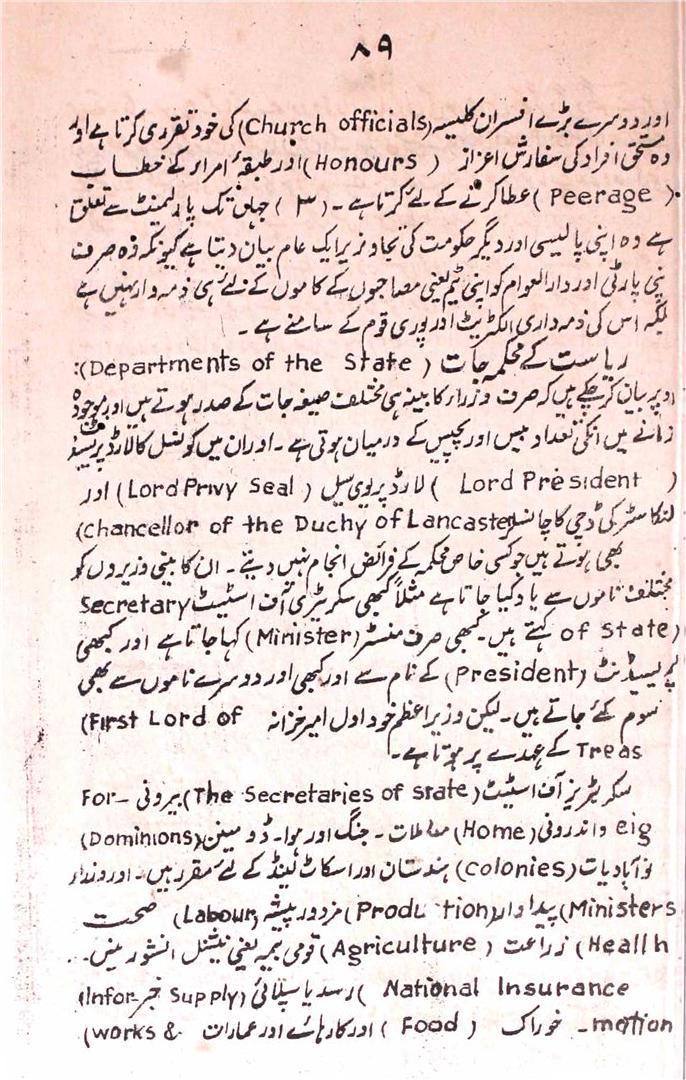 ۸۹
اور دوسرے بڑے افسران کلیسہ (Church officials) کی خود تقرری کرتا ہے اور
وہ مستحق افراد کی سفارش اعزاز (Honours) اور طبقۂ امراء کے خطاب
(Peerage) عطا کرنے کے لئے کرتا ہے۔ (۳) جہاں تک پارلیمنٹ سے تعلق
ہے وہ اپنی پالیسی اور دیگر حکومت کی تجاویز پر ایک عام بیان دیتا ہے کیونکہ وہ صرف
پنی پارٹی اور دارالعوام کو اپنی ٹیم یعنی مصاحبوں کے کاموں کے لئے ہی ذمہ دار نہیں ہے
بلکہ اس کی ذمہ داری الکٹریٹ اور پوری قوم کے سامنے ہے۔
ریاست کے محکمہ جات (Departments of the State):
اوپر بیان کر چکے ہیں کہ صرف وزراء کابینہ ہی مختلف صیغہ جات کے صدر ہوتے ہیں اور موجودہ
زمانے میں انکی تعداد بیس اور پچیس کے درمیان ہوتی ہے۔ اور ان میں کونسل کا لارڈ پریسیڈنٹ
(Lord President) لارڈ پریوی سیل (Lord Privy Seal) اور
لنکاسٹر کی ڈچی کا چانسلر (Chancellor of the Duchy of Lancaster
بھی ہوتے ہیں جو کسی خاص محکمہ کے فرائض انجام نہیں دیتے۔ ان کابینی وزیروں کو
مختلف ناموں سے یاد کیا جاتا ہے مثلاً کبھی سکریٹری آف اسٹیٹ Secretary
of State) کہتے ہیں۔ کبھی صرف منسٹر (Minister) کہا جاتا ہے اور کبھی
پریسیڈنٹ (President) کے نام سے اور کبھی اور دوسرے ناموں سے بھی
سوم کئے جاتے ہیں۔ لیکن وزیراعظم خود اول امیر خزانہ (First Lord of
Treas کے عہدے پر ہوتا ہے۔
سکریٹریز آف اسٹیٹ (The Secretaries of state) بیرونی For-
eig و اندرونی (Home) معاملات۔ جنگ اور ہوا۔ ڈومینن (Dominions)
نوآبادیات (colonies) ہندستان اور اسکاٹ لینڈ کے لئے مقرر ہیں۔ اور وزراء
(Ministers) پیداوار (Production) مزدور پیشہ (Labour) صحت
(Heallh زراعت (Agriculture) قومی بیمہ یعنی نیشنل انشورینس۔
(National Insurance رسد یا سپلائی (Supply) خبر (Infor-
mation۔ خوراک (Food) اور کارہائے اور عمارات (works &